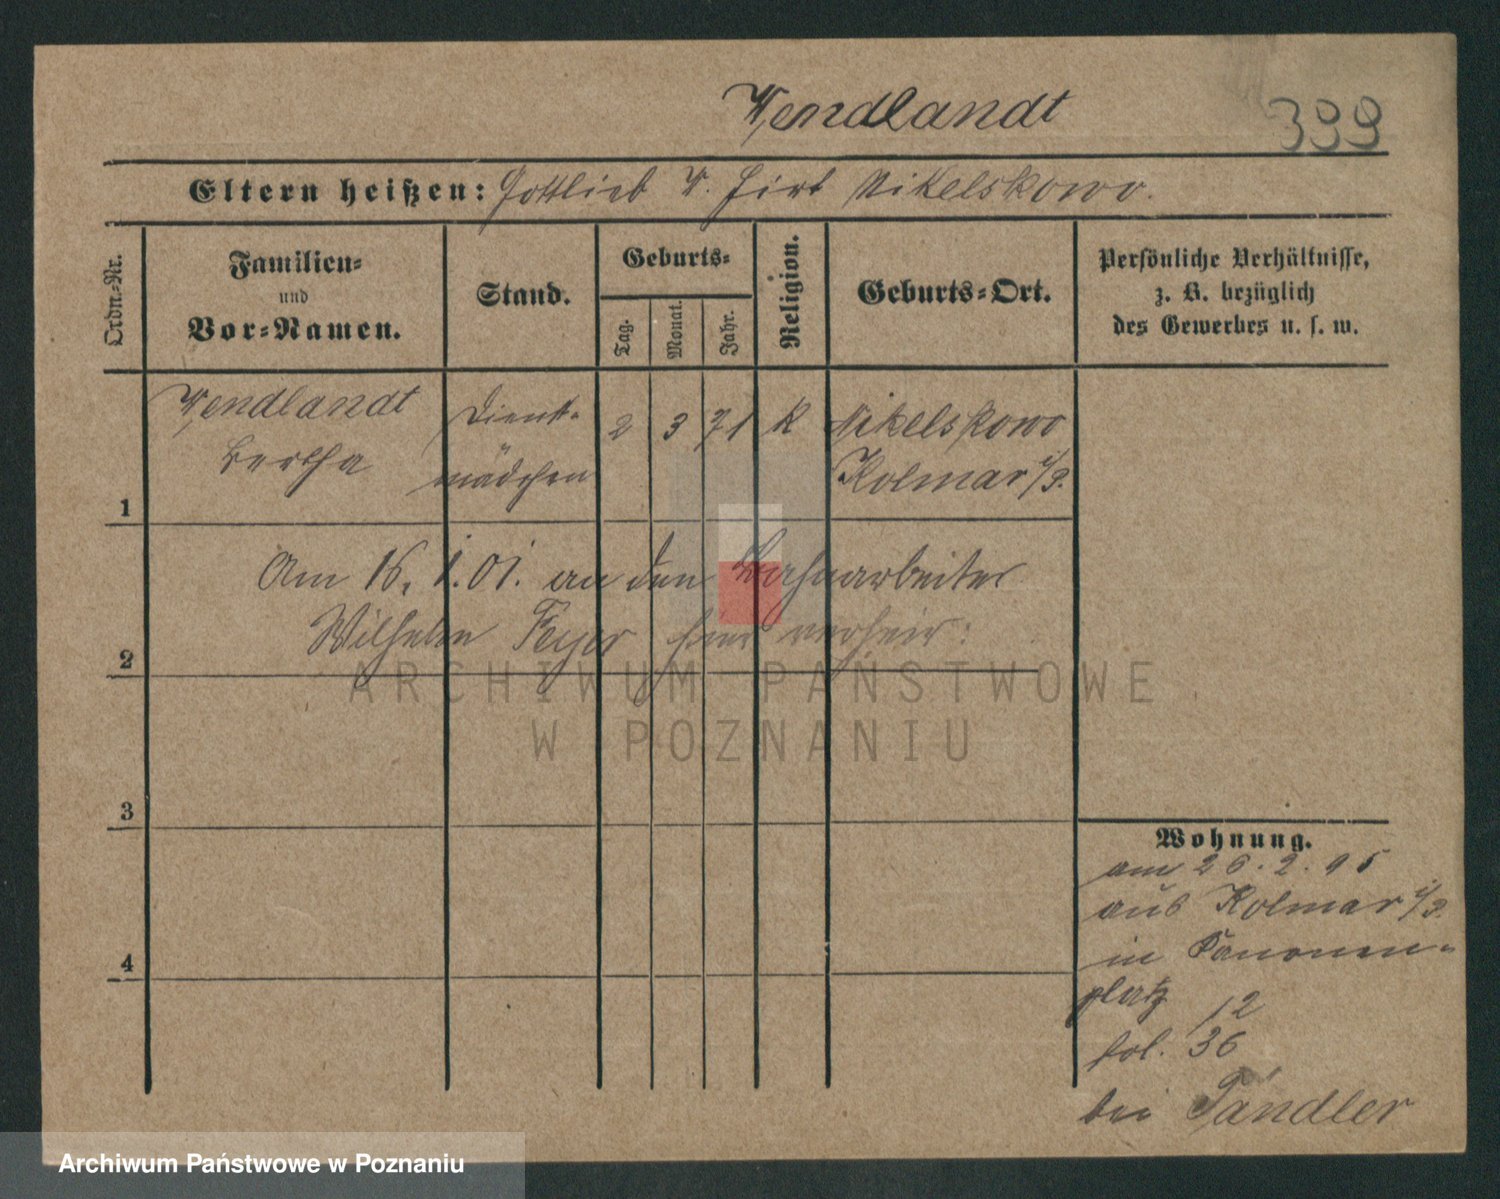 Wendlandt
399
Eltern heißen: Gottlieb W. Hirt Nikelskowo.
Ordn.-Nr.
Familien-
und
Vor-Namen.
Stand.
Geburts-
Tag.
Monat.
Jahr.
Religion.
Geburts-Ort.
Persönliche Verhältnisse,
z. B. bezüglich
des Gewerbes u. s. w.
Wendlandt Dienst- 2 3 71 K Nikelskowo
Bertha mädchen Kolmar i/P.
1
Am 16. 1. 01. an den Bahnarbeiter
Wilhelm Feyer hier verheir:
2
3
4
Wohnung.
am 26. 2. 95
aus Kolmar i/P.
in Kanonen-
platz 12
fol. 36
bei Tändler
ARCHIWUM PAŃSTWOWE
W POZNANIU
Archiwum Państwowe w Poznaniu